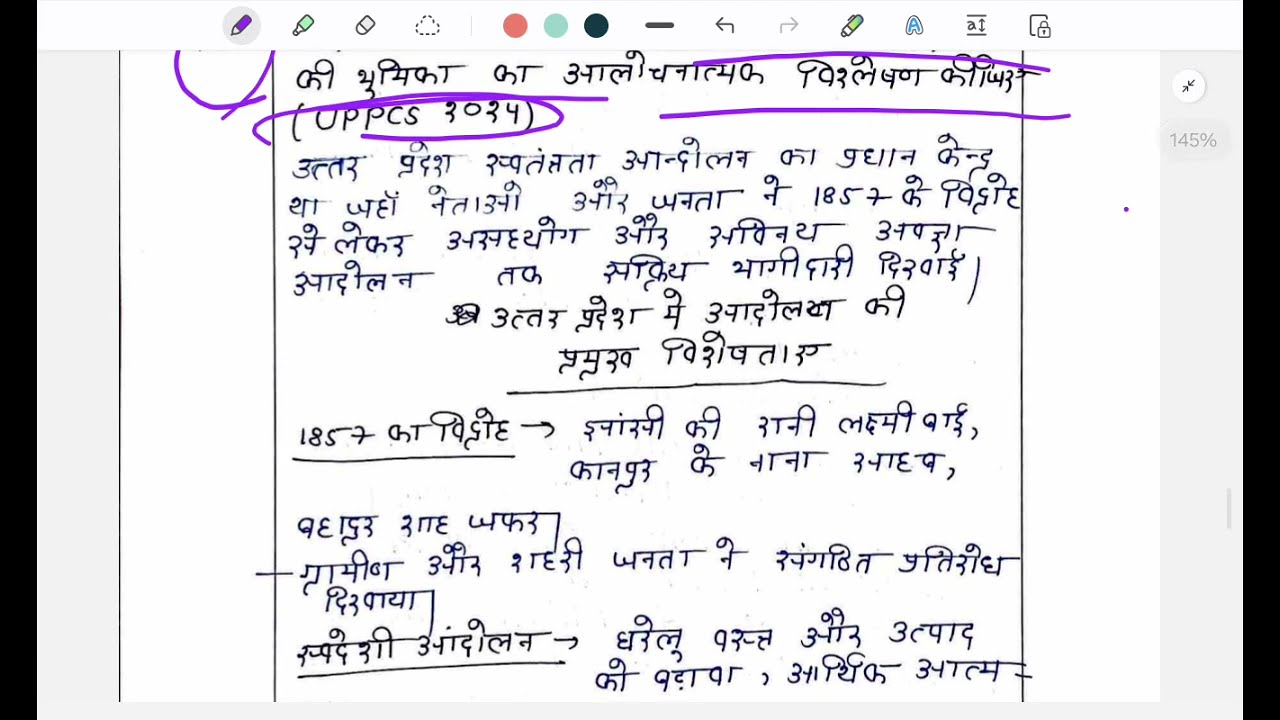 की भूमिका का आलोचनात्मक विश्लेषण कीजिए
(UPPCS २०२५)
उत्तर प्रदेश स्वतंत्रता आन्दोलन का प्रधान केन्द्र
था जहाँ नेताओ और जनता ने 1857 के विद्रोह
से लेकर असहयोग और सविनय अवज्ञा
आदोलन तक सक्रिय भागीदारी दिखाई|
उत्तर प्रदेश मे आदोलन की
प्रमुख विशेषताए
1857 का विद्रोह → झांसी की रानी लक्ष्मी बाई,
कानपुर के नाना साहब,
बहादुर शाह जफर|
- ग्रामीण और शहरी जनता ने संगठित प्रतिरोध
दिखाया|
स्वदेशी आंदोलन → घरेलू वस्त्र और उत्पाद
को बढ़ावा, आर्थिक आत्म-
145%